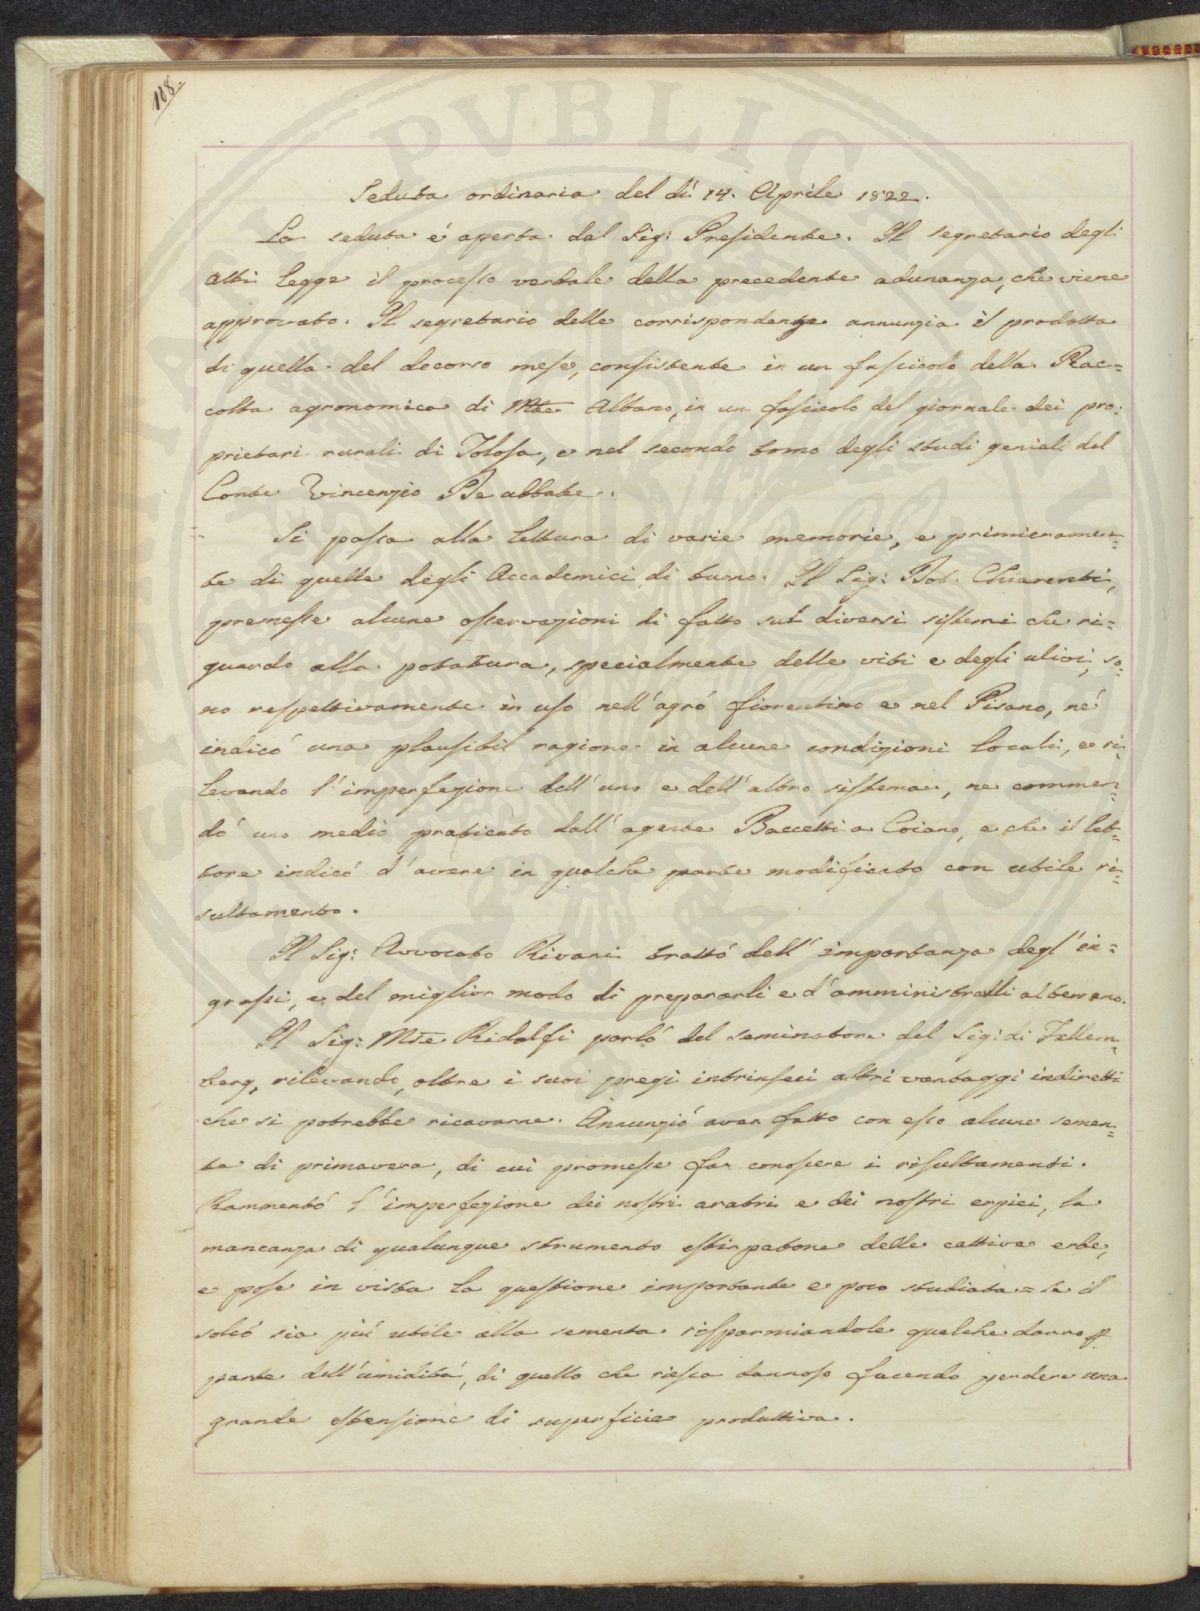 108.
Seduta ordinaria del dì 14. Aprile 1822.
La seduta é aperta dal Sig: Presidente. Il segretario degli
Atti legge il processo verbale della precedente adunanza, che viene
approvato. Il segretario delle corrispondenze annunzia il prodotto
di quella del decorso mese, consistente in un fascicolo della Rac=
colta agronomica di Mte Albano, in un fascicolo del giornale dei pro:
prietari rurali di Tolosa, e nel secondo tomo degli studi geniali del
Conte Vincenzio Re abbate.
Si passa alla lettura di varie memorie, e primieramen=
te di quelle degli Accademici di turno. Il Sig: Dot. Chiarenti,
premesse alcune osservazioni di fatto sui diversi sistemi che ri=
guardo alla potatura, specialmente delle viti e degli ulivi, so=
no respettivamente in uso nell'agró fiorentino e nel Pisano, né
indicó una plausibil ragione in alcune condizioni locali, e ri=
levando l'imperfezione dell'uno e dell'altro sistema, ne commen=
dó uno medio praticato dall'agente Baccetti a Coiano, e che il let=
tore indicó d'avere in qualche parte modificato con utile ri=
sultamento.
Il Sig: Avvocato Rivani trattó dell'importanza degl'in=
grassi, e del miglior modo di prepararli e d'amministralli al terreno.
Il Sig: Mse Ridolfi parló del seminatore del Sig: di Fellem=
berg, rilevando, oltre i suoi pregi intrinseci altri vantaggi indiretti
che si potrebbe ricavarne. Annunzió aver fatto con esso alcune semen=
te di primavera, di cui promesse far conoscere i risultamenti.
Rammentó l'imperfezione dei nostri aratri e dei nostri erpici, la
mancanza di qualunque strumento estirpatore delle cattive erbe,
e pose in vista la questione importante e poco studiata = se il
solcó sia piú utile alla sementa risparmiandole qualche danno p.
parte dell'umiditá, di quello che riesca dannoso facendo perdere una
grande estensione di superficie produttiva.